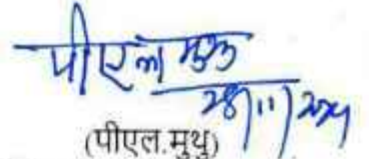 पीएल मुथु
28/11/2024
(पीएल.मुथु)